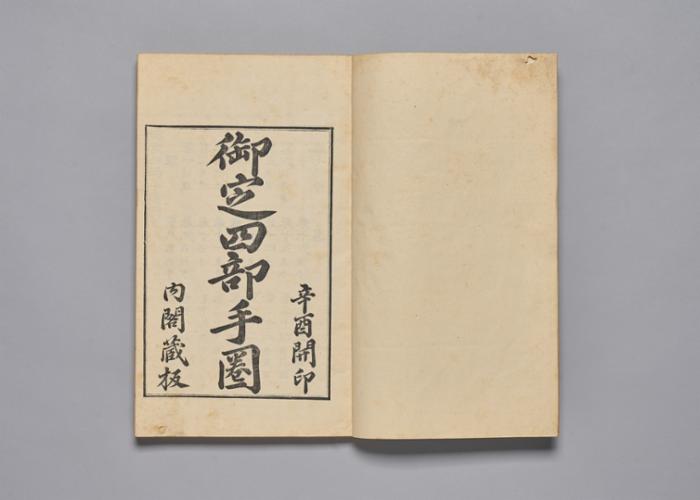 辛酉開印
御定四部手圈
內閣蔵板